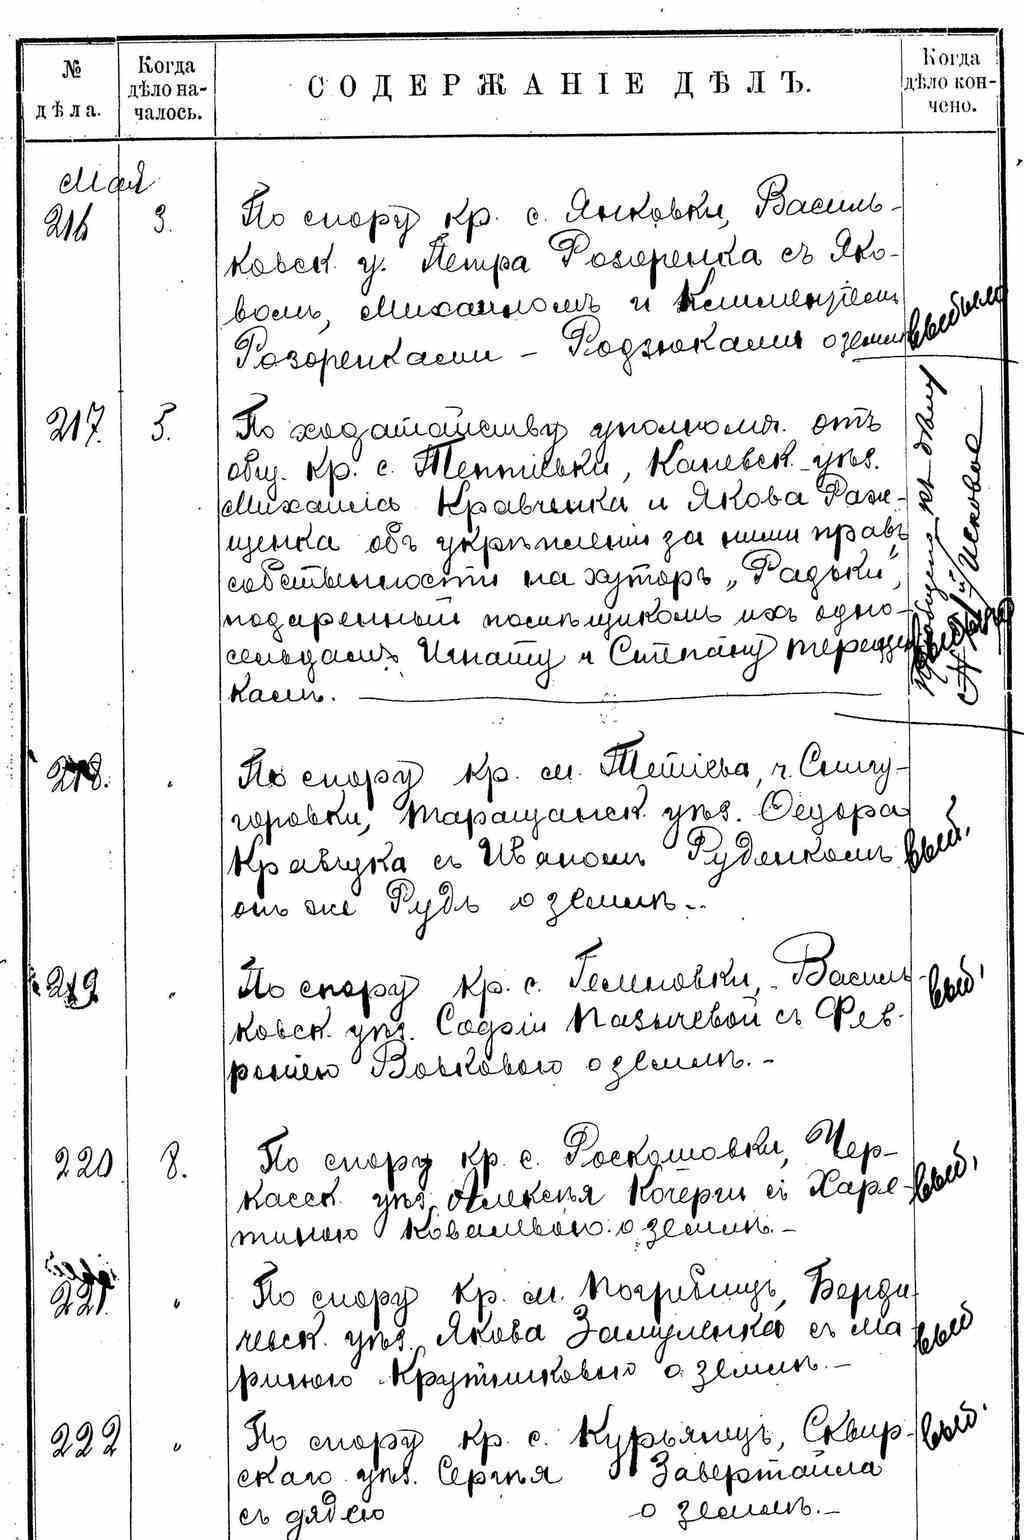 № дѣла.
Когда дѣло началось.
СОДЕРЖАНІЕ ДѢЛЪ.
Когда дѣло кончено.
Мая
216 3. По спору кр. с. Янковки, Василь-
ковск. у. Петра Розоренка съ Яко-
вомъ, Михаиломъ и Климентіемъ
Розоренками – Родзюками о землѣ
выбыло
217. 5. По ходатайству уполном. отъ
общ. кр. с. Тептіевки, Каневск. уѣз.
Михаила Кравченка и Якова
щенка объ укрѣпленіи за ними правъ
собственности на хуторъ „Радьки",
подаренный помѣщикомъ ихъ одно-
сельцамъ Игнату и Степану Терещен-
камъ.
къ дѣлу
Исковое
218. „ По спору кр. м. Тетіева, ч. Снигу-
горовки, Таращанск. уѣз. Ѳедора
Кравчука съ Иваномъ Руденкомъ
онъ же Рудь о землѣ.-
выб.
219 „ По спору кр. с. Василь-
ковск. уѣз. Софіи Пазычевой съ Фев-
роніею Вовковою о землѣ.-
выб.
220 8. По спору кр. с. Роскошовки, Чер-
касск. уѣз. Алексѣя Кочерги съ Харе-
тиною Ковалевою о землѣ.-
выб.
221. „ По спору кр. м. Погребищъ, Берди-
чевск. уѣз. Якова Замуленка съ Ма-
риною о землѣ.-
выб
222 „ По спору кр. с. Курьянецъ, Сквир-
скаго уѣз. Сергѣя Завертайла
съ дядею о землѣ.-
выб.